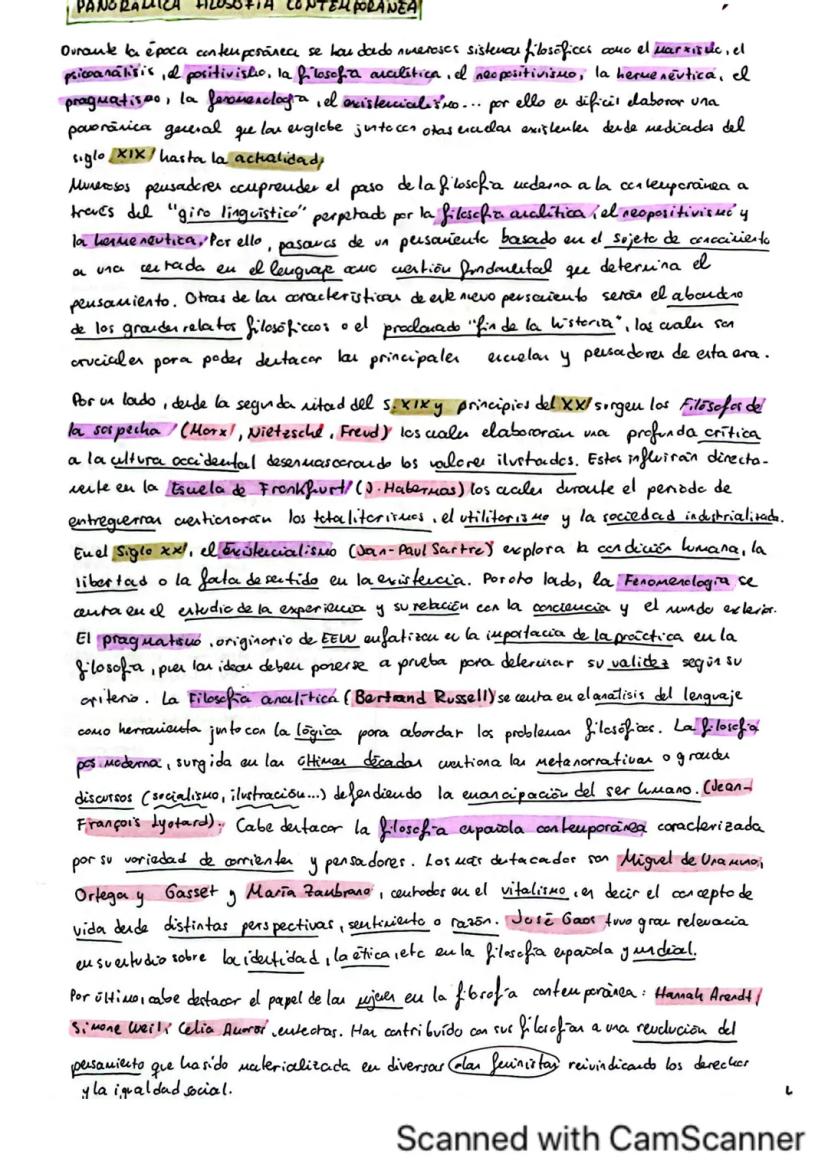 PANORÁMICA FILOSOFÍA CONTEMPORÁNEA
Durante la época contemporánea se han dado numerosos sistemas filosóficos como el marxismo, el
psicoanálisis, el positivismo, la filosofía analítica, el neopositivismo, la hermenéutica, el
pragmatismo, la fenomenología, el existencialismo... por ello es difícil elaborar una
panorámica general que las englobe junto con otras escuelas existentes desde mediados del
siglo XIX hasta la actualidad.
Numerosos pensadores comprenden el paso de la filosofía moderna a la contemporánea a
través del "giro lingüístico" perpetado por la filosofía analítica, el neopositivismo y
la hermenéutica. Por ello, pasamos de un pensamiento basado en el sujeto de conocimiento
a una centrada en el lenguaje como cuestión fundamental que determina el
pensamiento. Otras de las características de este nuevo pensamiento serán el abandono
de los grandes relatos filosóficos o el proclamado "fin de la historia", las cuales son
cruciales para poder destacar las principales escuelas y pensadores de esta era.
Por un lado, desde la segunda mitad del S. XIX y principios del XX surgen los Filósofos de
la sospecha (Marx, Nietzsche, Freud) los cuales elaborarán una profunda crítica
a la cultura occidental desenmascarando los valores ilustrados. Estos influirán directa-
mente en la Escuela de Frankfurt (J. Habermas) los cuales durante el periodo de
entreguerras cuestionarán los totalitarismos, el utilitarismo y la sociedad industrializada.
En el Siglo XX, el Existencialismo (Jean-Paul Sartre) explora la condición humana, la
libertad o la falta de sentido en la existencia. Por otro lado, la Fenomenología se
centra en el estudio de la experiencia y su relación con la conciencia y el mundo exterior.
El pragmatismo, originario de EEUU enfatizan en la importancia de la práctica en la
filosofía, pues las ideas deben ponerse a prueba para determinar su validez según su
criterio. La Filosofía analítica (Bertrand Russell) se centra en el análisis del lenguaje
como herramienta junto con la lógica para abordar los problemas filosóficos. La filosofía
posmoderna, surgida en las últimas décadas cuestiona las metanarrativas o grandes
discursos (socialismo, ilustración...) defendiendo la emancipación del ser humano. (Jean-
François Lyotard). Cabe destacar la filosofía española contemporánea caracterizada
por su variedad de corrientes y pensadores. Los más destacados son Miguel de Unamuno,
Ortega y Gasset y María Zambrano, centrados en el vitalismo, es decir el concepto de
vida desde distintas perspectivas, sentimiento o razón. José Gaos tuvo gran relevancia
en su estudio sobre la identidad, la ética, etc en la filosofía española y mundial.
Por último, cabe destacar el papel de las mujeres en la filosofía contemporánea: Hannah Arendt,
Simone Weil, Celia Amorós, entre otras. Han contribuido con sus filosofías a una revolución del
pensamiento que ha sido materializada en diversas olas feministas reivindicando los derechos
y la igualdad social.
Scanned with CamScanner